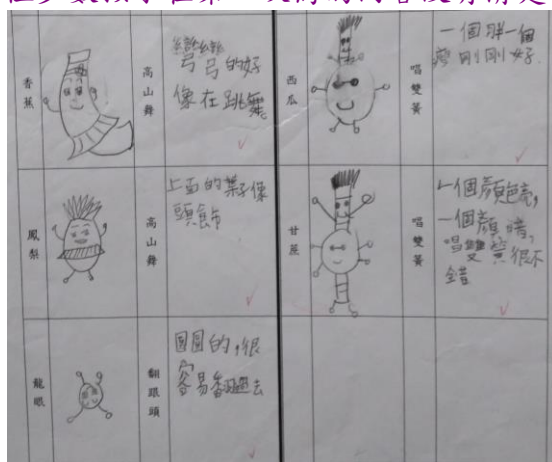 香蕉
高山舞
彎彎
弓弓的好
像在跳舞。
西瓜
唱雙簧
一個胖一個
瘦剛剛好.
鳳梨
高山舞
上面的葉子像
頭飾
甘蔗
唱雙簧
一個顏色亮,
一個顏暗,
唱雙簧很不
錯
龍眼
翻跟頭
圓圓的,很
容易翻過去